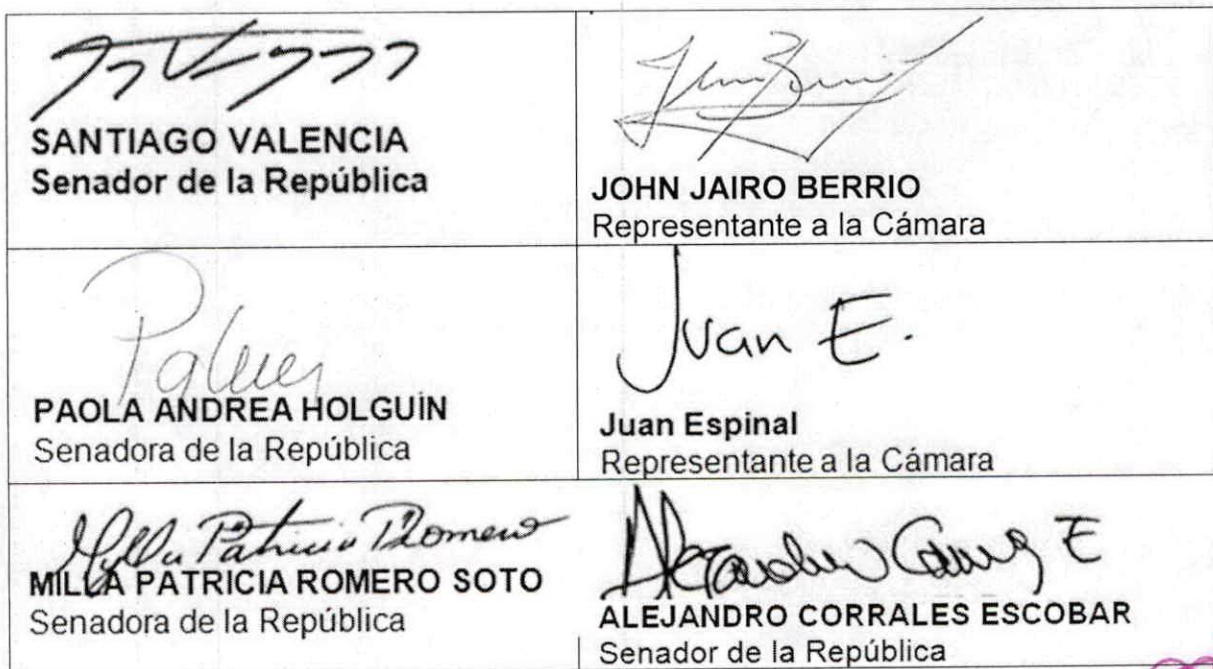 SANTIAGO VALENCIA
Senador de la República
JOHN JAIRO BERRIO
Representante a la Cámara
PAOLA ANDREA HOLGUÍN
Senadora de la República
Juan E.
Juan Espinal
Representante a la Cámara
Patricia Romero
MILLA PATRICIA ROMERO SOTO
Senadora de la República
ALEJANDRO CORRALES ESCOBAR
Senador de la República